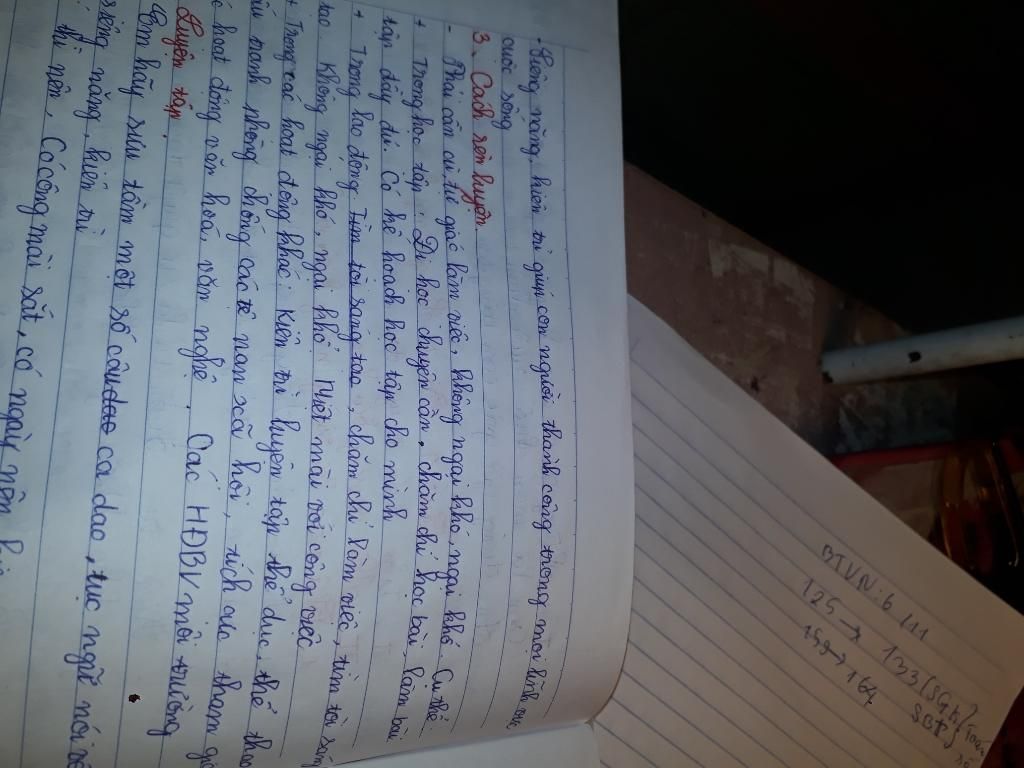 - Siêng năng, kiên trì giúp con người thành công trong mọi lĩnh vực
cuộc sống
3. Cách rèn luyện
- Phải cần cù tự giác làm việc, không ngại khó, ngại khổ. Cụ thể:
+ Trong học tập: Đi học chuyên cần, chăm chỉ học bài, làm bài
tập đầy đủ. Có kế hoạch học tập cho mình
+ Trong lao động Tìm tòi sáng tạo, chăm chỉ làm việc, tìm tòi sáng
tạo không ngại khó, ngại khổ. Miệt mài với công việc
+ Trong các hoạt động khác: kiên trì luyện tập thể dục, thể thao
tranh phòng chống các tệ nạn xã hội, tích cực tham gia
hoạt động văn hoá, văn nghệ. Các HĐBV môi trường
Luyện tập.
Em hãy sưu tầm một số câu dao ca dao, tục ngữ nói về
siêng năng, kiên trì
thì nên, Có công mài sắt, có ngày nên
BTVN: 6
125 → 133 (SGK/Toán
159 → 164 SBT)